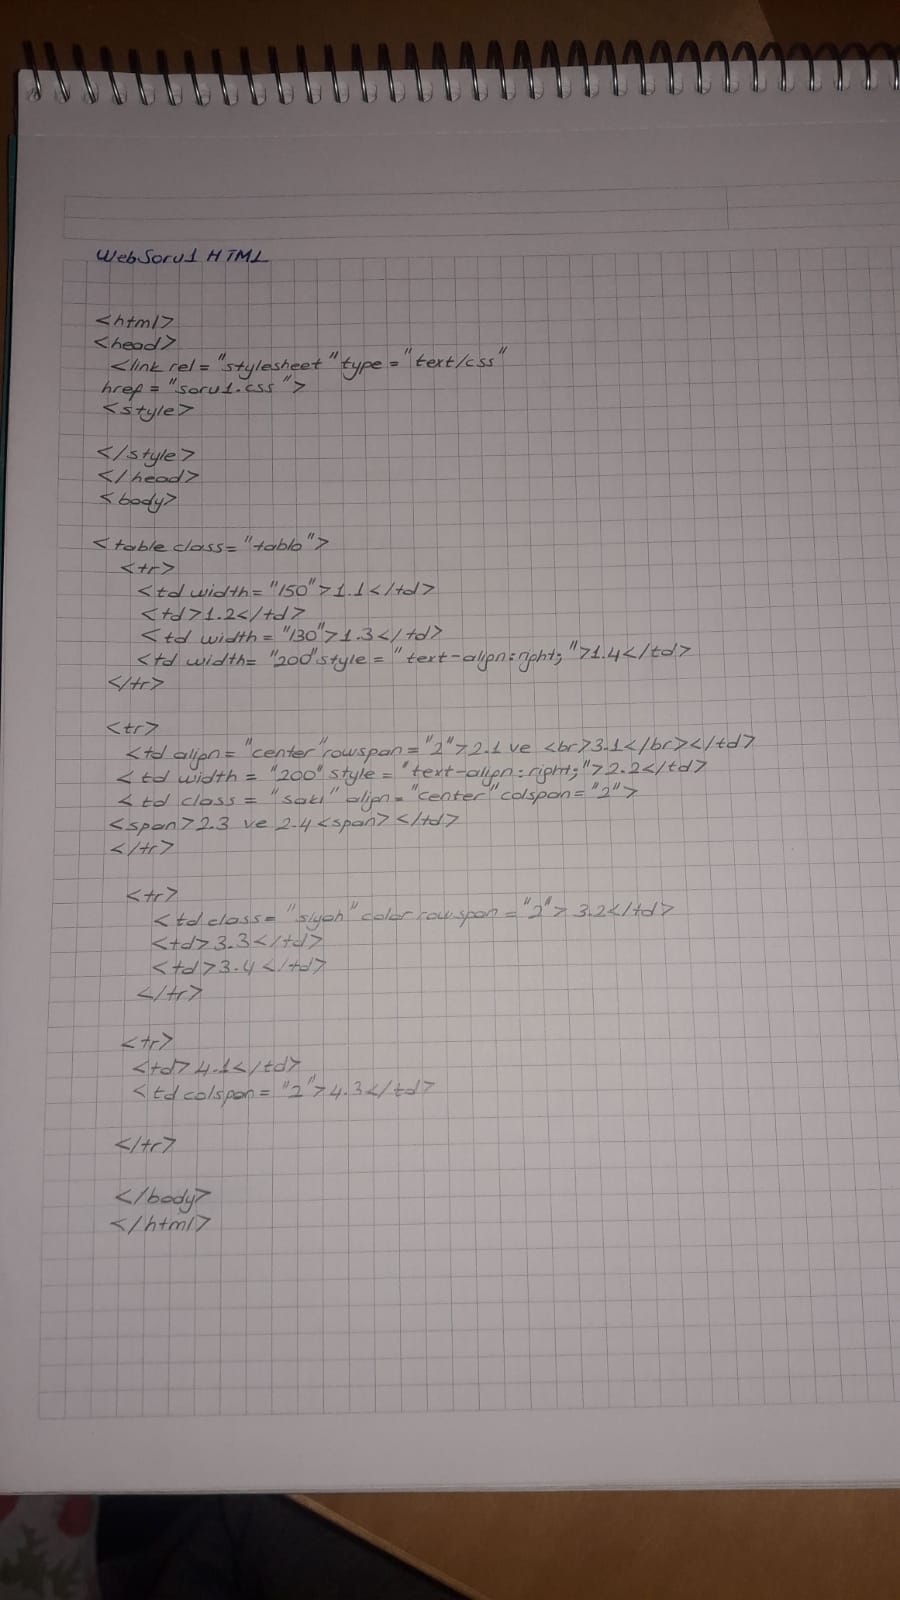 WebSoru1 HTML
<html>
<head>
<link rel="stylesheet" type="text/css"
href="soru1.css">
<style>
</style>
</head>
<body>
<table class="tablo">
<tr>
<td width="150">1.1</td>
<td>1.2</td>
<td width="130">1.3</td>
<td width="200" style="text-align:right;">1.4</td>
</tr>
<tr>
<td align="center" rowspan="2">2.1 ve 3.1</br></td>
<td width="200" style="text-align:right;">2.2</td>
<td class="sari" align="center" colspan="2">
<span>2.3 ve 2.4<span></td>
</tr>
<tr>
<td class="siyah" color rowspan="2">3.2</td>
<td>3.3</td>
<td>3.4</td>
</tr>
<tr>
<td>4.1</td>
<td colspan="2">4.3</td>
</tr>
</body>
</html>